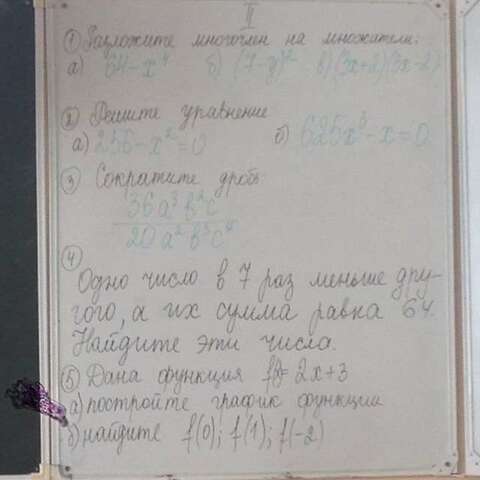 II
① Разложите многочлен на множители:
а) 64-x⁴ б) (7-y)² в) (3x+2)(3x-2)
② Решите уравнение
а) 256-x²=0 б) 625x³-x=0
③ Сократите дробь:
36a³b²c
20a²b³c
④
Одно число в 7 раз меньше дру-
гого, а их сумма равна 64.
Найдите эти числа.
⑤ Дана функция = 2x+3
а) постройте график функции
б) найдите f(0); f(1); f(-2)